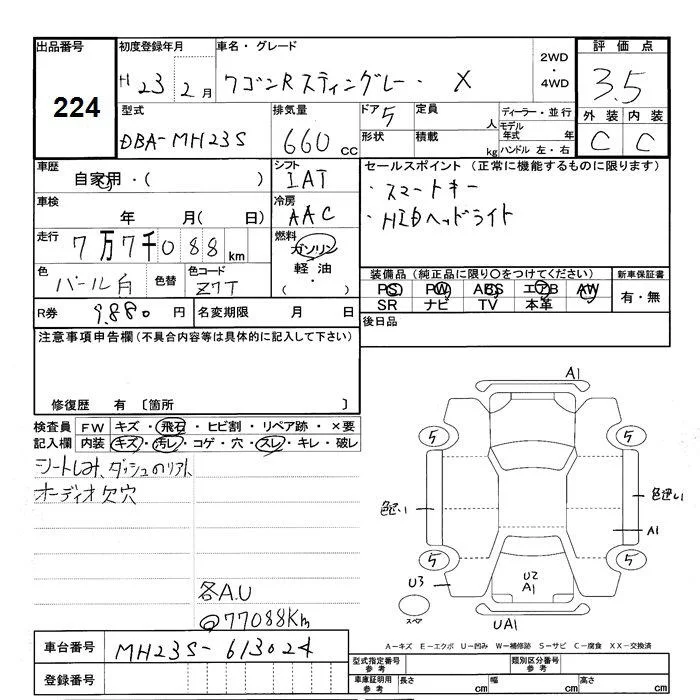 出品番号
224
初度登録年月
H 23 2月
車名・グレード
ワゴンR スティングレー・ X
2WD
・
4WD
評価点
3.5
外装 内装
C C
型式
DBA-MH23S
排気量
660 cc
ドア 5
形状
定員 人
積載 kg
ディーラー・並行
モデル年式 年
ハンドル 左・右
車歴
自家用・( )
シフト
IAT
セールスポイント(正常に機能するものに限ります)
・スマートキー
・HIDヘッドライト
車検
年 月( 日)
冷房
AAC
走行
7万7千088 km
燃料
ガソリン
軽油
( ・ )
色
パール白
色替
色コード
Z7T
装備品(純正品に限り○をつけてください)
PS PW ABS エアB AW
SR ナビ TV 本革
新車保証書
有・無
R券 9,880 円
名変期限 月 日
後日品
注意事項申告欄(不具合内容等は具体的に記入して下さい)
修復歴 有 〔箇所 〕
検査員記入欄
FW キズ・飛石・ヒビ割・リペア跡・×要
内装 キズ・汚レ・コゲ・穴・スレ・キレ・破レ
シートしみ、ダッシュのリアト、
オーディオ欠穴
各A.U
@77088Km
A1
5 5
色違い 色違い
A1
5 5
U3
U2
A1
スペア
UA1
A-キズ E-エクボ U-凹み W-補修跡 S-サビ C-腐食 XX-交換済
車台番号 MH23S-613024
登録番号
型式指定番号 参考
類別区分番号 参考
車庫証明用 参考
長さ cm 幅 cm 高さ cm